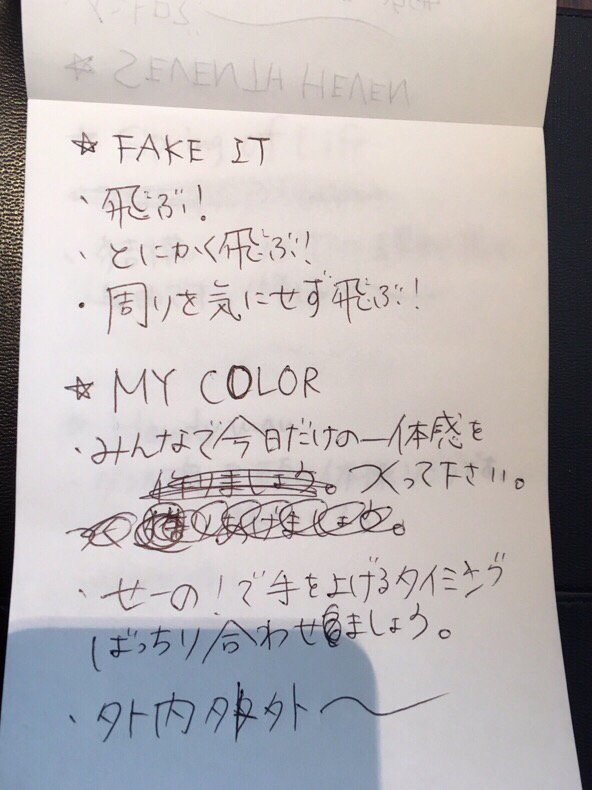 ☆ SEVENTH HEVEN
☆ FAKE IT
・飛ぶ!
・とにかく飛ぶ!
・周りを気にせず飛ぶ!
☆ MY COLOR
・みんなで今日だけの一体感を
作りましょう。つくって下さい。
りあげましょう。
・せーの!で手を上げるタイミング
ばっちり合わせましょう。
・外内外〜